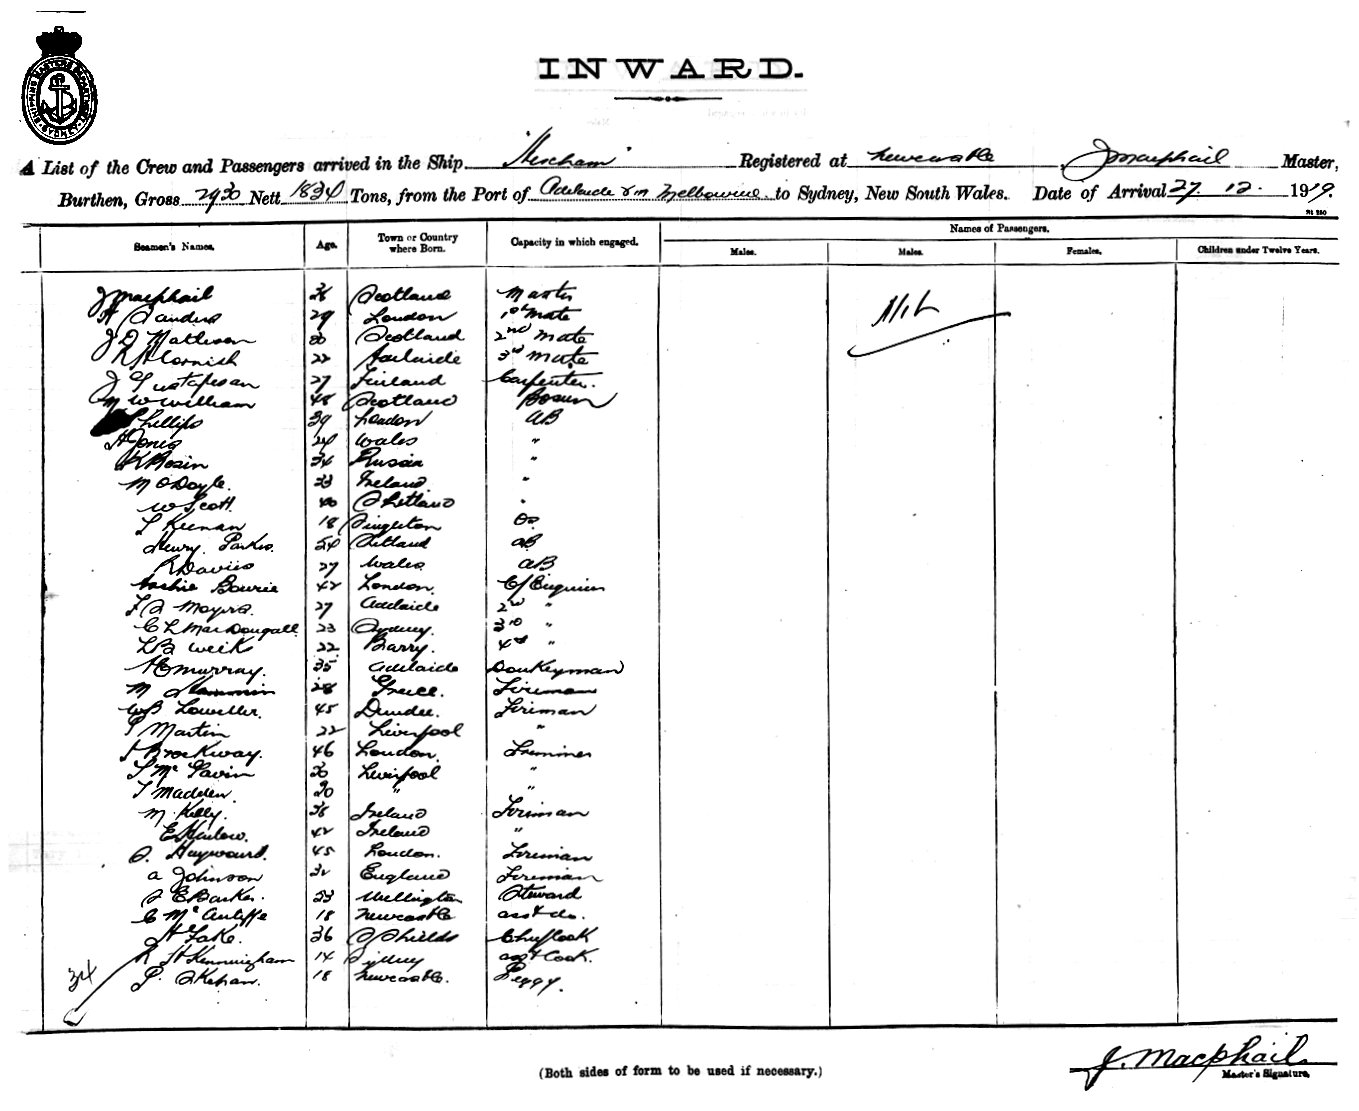 SHIPPING MASTERS DEPARTMENT SYDNEY
INWARD.
A List of the Crew and Passengers arrived in the Ship "Hexham" Registered at Newcastle J Macphail Master,
Burthen, Gross 2930 Nett 1834 Tons, from the Port of Adelaide via Melbourne to Sydney, New South Wales. Date of Arrival 27 12. 1919.
Seamen's Names. Age. Town or Country where Born. Capacity in which engaged. Names of Passengers.
Males. Males. Females. Children under Twelve Years.
J Macphail 36 Scotland Master
H Sanders 29 London 1st Mate Nil
J D Mathieson 30 Scotland 2nd Mate
R H Cornish 22 Adelaide 3rd Mate
J Gustafsson 27 Finland Carpenter.
M W William 48 Scotland Bosun
Phillips 39 London AB
H Jones 24 Wales "
K Rosin 34 Russia "
M O Doyle. 33 Ireland "
W Scott. 40 Shetland "
T Keenan 18 Singleton OS
Henry Parkes. 54 AB
R Davies 27 Wales AB
Archie Bowrie 42 London. C/ Enginier
F S Mayers. 27 Adelaide 2nd "
C L MacDougall 23 Sydney. 3rd "
L B Weeks 22 Barry. 4th "
H C Murray. 35 Adelaide Donkeyman
M 28 Greece. Fireman
W B 45 Dundee. Fireman
P Martin 22 Liverpool "
J Brockway. 46 London Trimmer
T McGavin 30 Liverpool "
T Madden. 20 " "
M. Kelly. 36 Ireland Fireman
E 42 Ireland "
S. Hayward. 45 London. Fireman
A Johnson 32 England Fireman
S E Barker. 53 Wellington Steward
C McAuliffe 18 Newcastle asst do.
H Lake. 36 S Shields Chief Cook
R St Kenningham 14 Sydney asst Cook.
34 P. 18 Newcastle. Peggy.
J. Macphail
Master's Signature.
(Both sides of form to be used if necessary.)